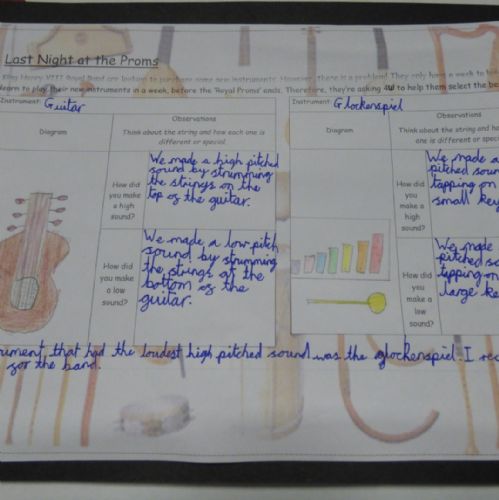 Last Night at the Proms
King Henry VIII Royal Band are looking to purchase some new instruments. However, there is a problem! They only have a week to
learn to play their new instruments in a week, before the 'Royal Proms' ends. Therefore, they're asking to help them select the
Instrument: Guitar
Diagram
Observations
Think about the string and how each one is
different or special.
How did
you make
a high
sound?
We made a high pitched
sound by strumming
the strings on the
top of the guitar.
How did
you make
a low
sound?
We made a low pitch
sound by strumming
the strings at the
bottom of the
guitar.
Instrument: Glockenspiel
Diagram
Observations
Think about the string and
one is different or
How did
you
make a
high
sound?
We made a
pitched
tapping on
small
How did
you
make a
low
sound?
We made
pitched
tapping on
large
that had the loudest high pitched sound was the glockenspiel. I
for the band.